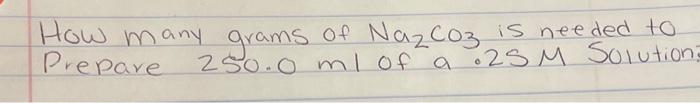 How many grams of Na2CO3 is needed to
Prepare 250.0 ml of a .25 M Solution?